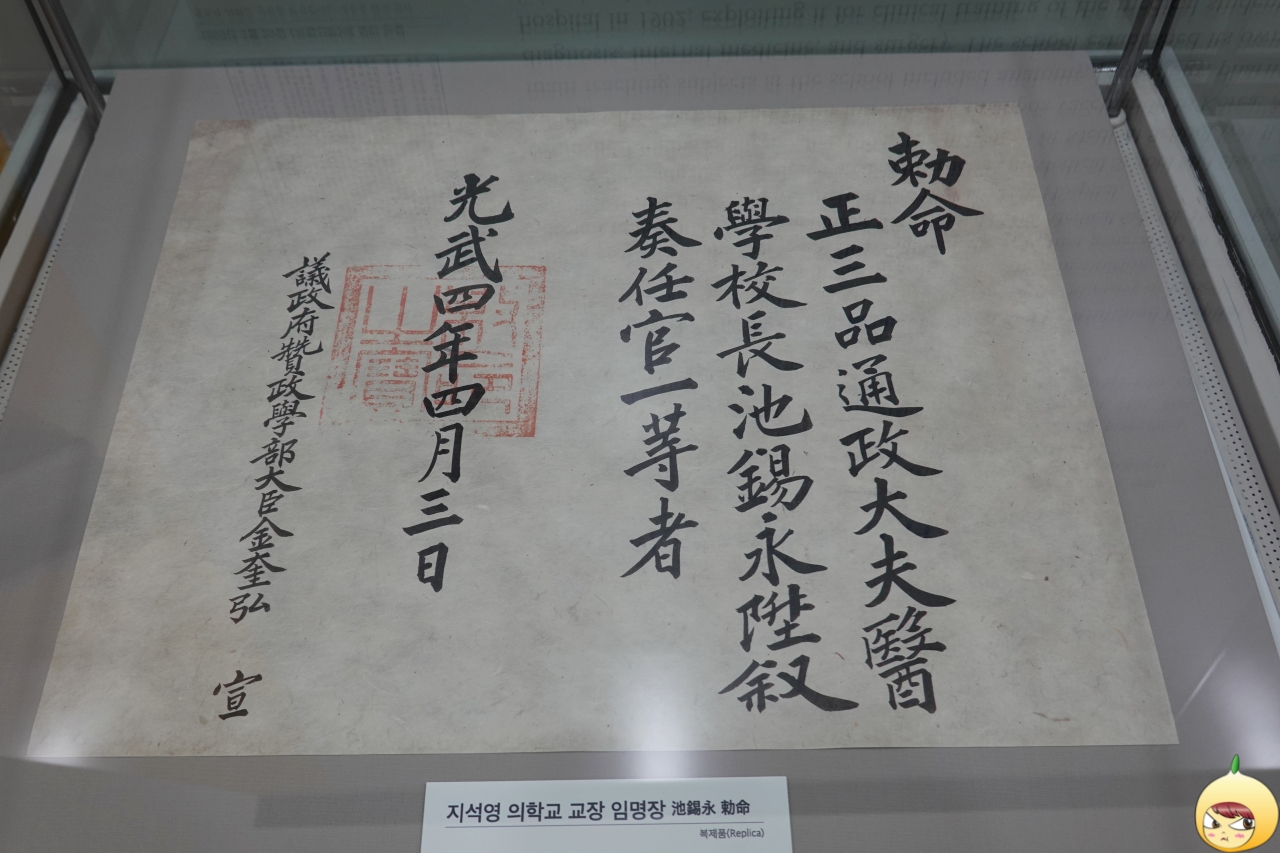 勅命
正三品通政大夫醫
學校長池錫永陞叙
奏任官一等者
光武四年四月三日
議政府贊政學部大臣金奎弘 宣
지석영 의학교 교장 임명장 池錫永 勅命
복제품(Replica)